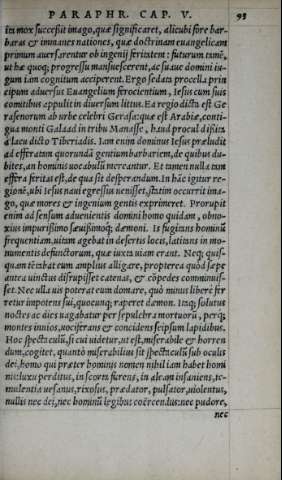 PARAPHR. CAP. V. 95
ita mox successit imago, quæ significaret, alicubi fore bar-
baras & immanes nationes, quæ doctrinam euangelicam
primum auersarentur ob ingenij feritatem: futurum tamē,
ut hæ quoq; progressu mansuescerent, ac suaue domini iu-
gum iam cognitum acciperent. Ergo sedata procella prin
cipum aduersus Euangelium ferocientium, Iesus cum suis
comitibus appulit in diuersum littus. Ea regio dicta est Ge
rasenorum ab urbe celebri Gerasa: quæ est Arabiæ, conti-
gua monti Galaad in tribu Manasse, haud procul dissita
a lacu dicto Tiberiadis. Iam enim dominus Iesus præludit
ad efferatum quorundā gentium barbariem, de quibus du-
bites, an hominis uocabulū mereantur. Et tamen nulla tam
effera feritas est, de qua sit desperandum. In hāc igitur re-
gionē, ubi Iesus naui egressus uenisset, statim occurrit ima-
go, quæ mores & ingenium gentis exprimeret. Prorupit
enim ad sensum aduenientis domini homo quidam, obno-
xius impurissimo sæuissimoq; dæmoni. Is fugitans hominū
frequentiam, uitam agebat in desertis locis, latitans in mo-
numentis defunctorum, quæ iuxta uiam erant. Neq; quis-
quam tētabat eum amplius alligare, propterea quòd sæpe
antea uinctus disrupisset catenas, & cōpedes comminuis-
set. Nec ulla uis poterat eum domare, quò minus liberè fer
retur impotens sui, quocunq; raperet dæmon. Itaq; solutus
noctes ac dies uagabatur per sepulchra mortuorū, perq;
montes inuios, uociferans & concidens seipsum lapidibus.
Hoc spectaculū, si cui uidetur, ut est, miserabile & horren
dum, cogitet, quantò miserabilius sit spectaculū sub oculis
dei, homo qui præter hominis nomen nihil iam habet homi
nis: luxu perditus, in scorta furens, in aleam insaniens, te-
mulentia uesanus, rixosus, prædator, pulsator, uiolentus,
nullis nec dei, nec hominū legibus coërcendus: nec pudore,
nec